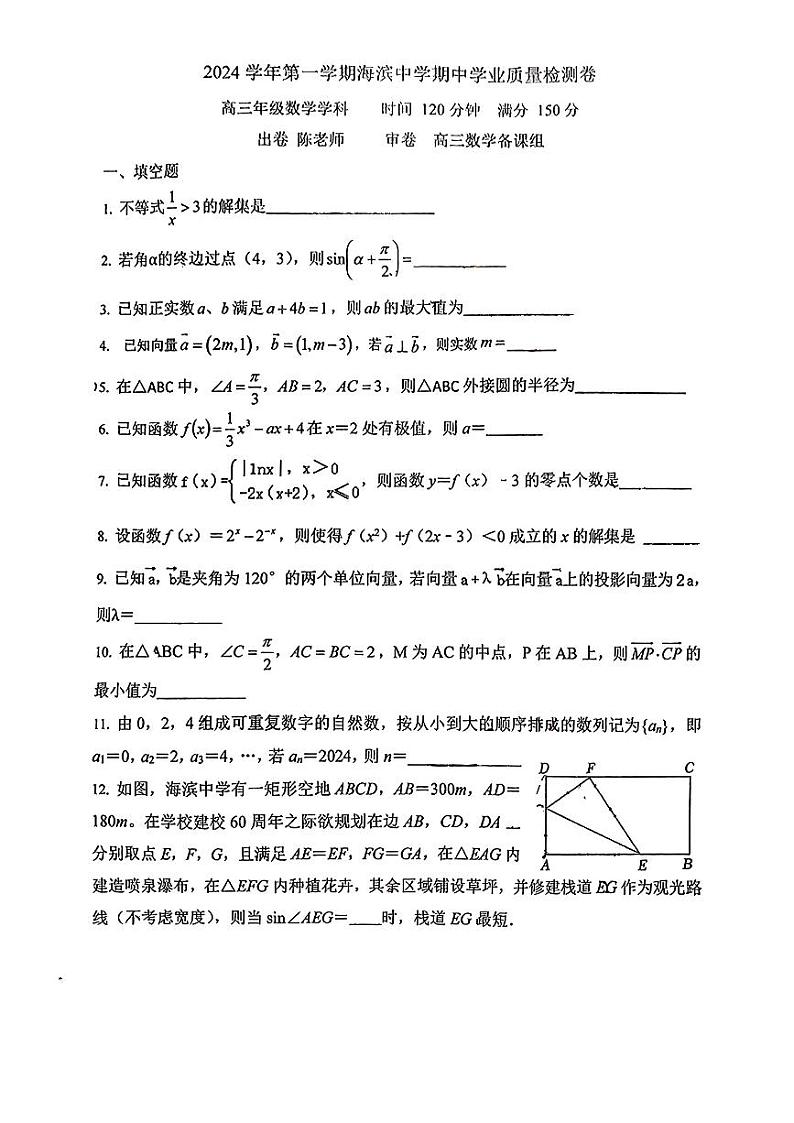 2024 学年第一学期海滨中学期中学业质量检测卷
高三年级数学学科 时间 120 分钟 满分 150 分
出卷 陈老师 审卷 高三数学备课组
一、填空题
1. 不等式 1/x > 3 的解集是
2. 若角α的终边过点（4，3），则 sin(α + π/2) =
3. 已知正实数 a、b 满足 a + 4b = 1，则 ab 的最大值为
4. 已知向量 a⃗ = (2m,1)，b⃗ = (1,m−3)，若 a⃗ ⊥ b⃗，则实数 m =
5. 在△ABC 中，∠A = π/3，AB = 2，AC = 3，则△ABC 外接圆的半径为
6. 已知函数 f(x) = 1/3 x³ − ax + 4 在 x=2 处有极值，则 a=
7. 已知函数 f(x)={|lnx|，x＞0
-2x(x+2)，x≤0，则函数 y=f（x）﹣3 的零点个数是
8. 设函数 f（x）= 2ˣ − 2⁻ˣ，则使得 f（x²）+f（2x﹣3）＜0 成立的 x 的解集是
9. 已知 a⃗，b⃗是夹角为 120° 的两个单位向量，若向量 a + λ b⃗在向量a⃗上的投影向量为 2 a，
则λ=
10. 在△ABC 中，∠C = π/2，AC = BC = 2，M 为 AC 的中点，P 在 AB 上，则 MP⃗·CP⃗ 的
最小值为
11. 由 0，2，4 组成可重复数字的自然数，按从小到大的顺序排成的数列记为{aₙ}，即
a₁=0，a₂=2，a₃=4，…，若 aₙ=2024，则 n=
D F C
12. 如图，海滨中学有一矩形空地 ABCD，AB=300m，AD=
180m。在学校建校 60 周年之际欲规划在边 AB，CD，DA
分别取点 E，F，G，且满足 AE=EF，FG=GA，在△EAG 内
A E B
建造喷泉瀑布，在△EFG 内种植花卉，其余区域铺设草坪，并修建栈道 EG 作为观光路
线（不考虑宽度），则当 sin∠AEG= 时，栈道 EG 最短．